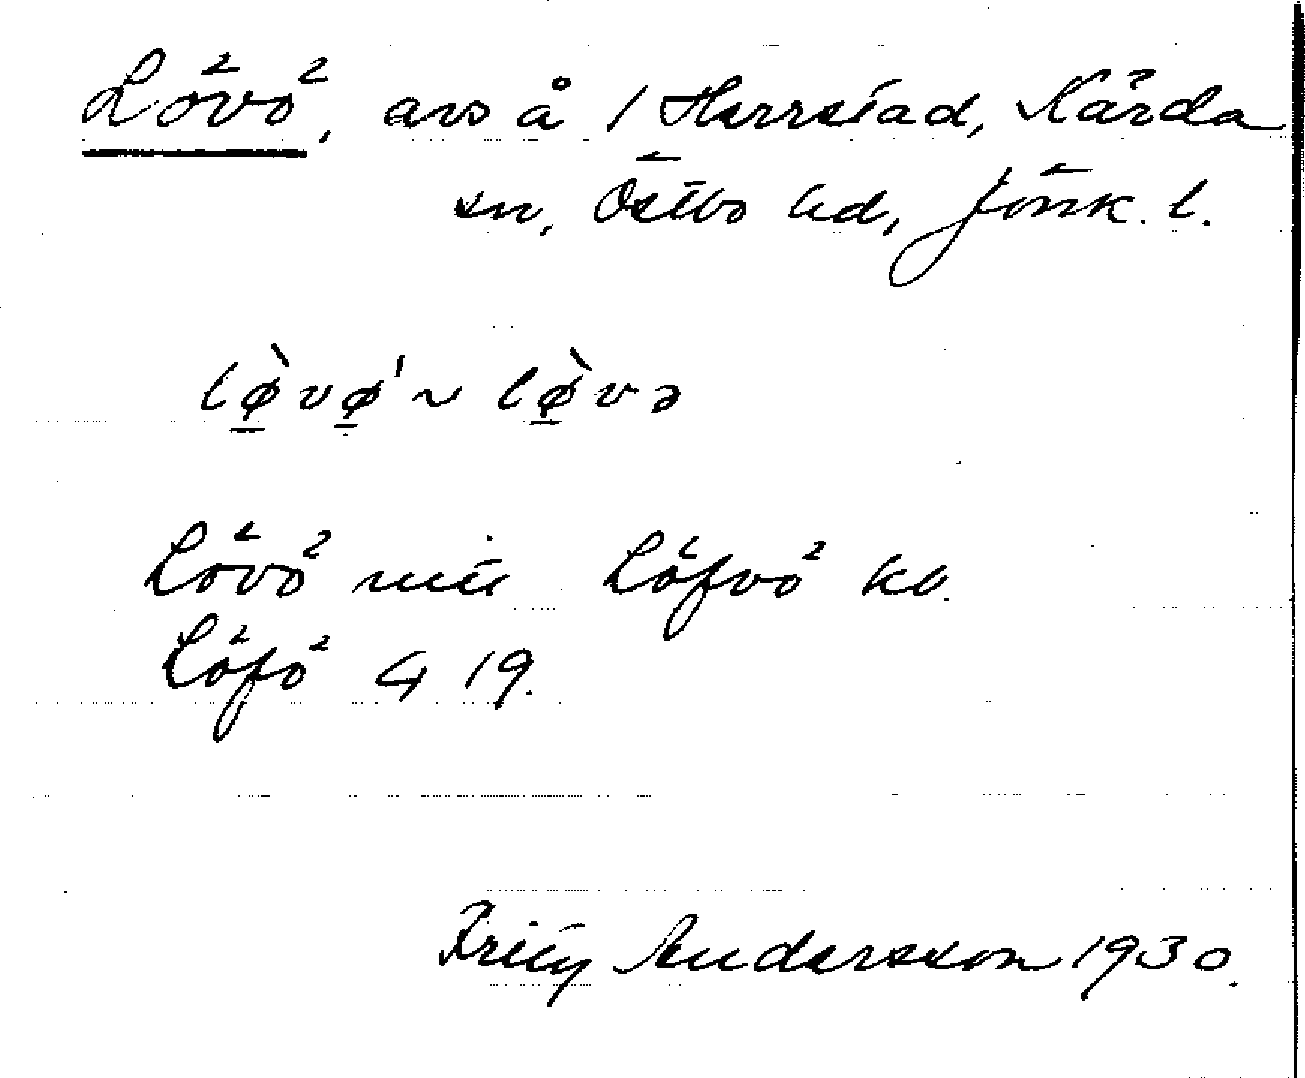 Lövö, avs å 1 Herrstad, Kärda
sn, Östbo hd, Jönk. l.
lø̀vø̀' ~ lø̀və
Lövö mtl Löfvö kb.
Löfö G 19.
Fritz Andersson 1930.